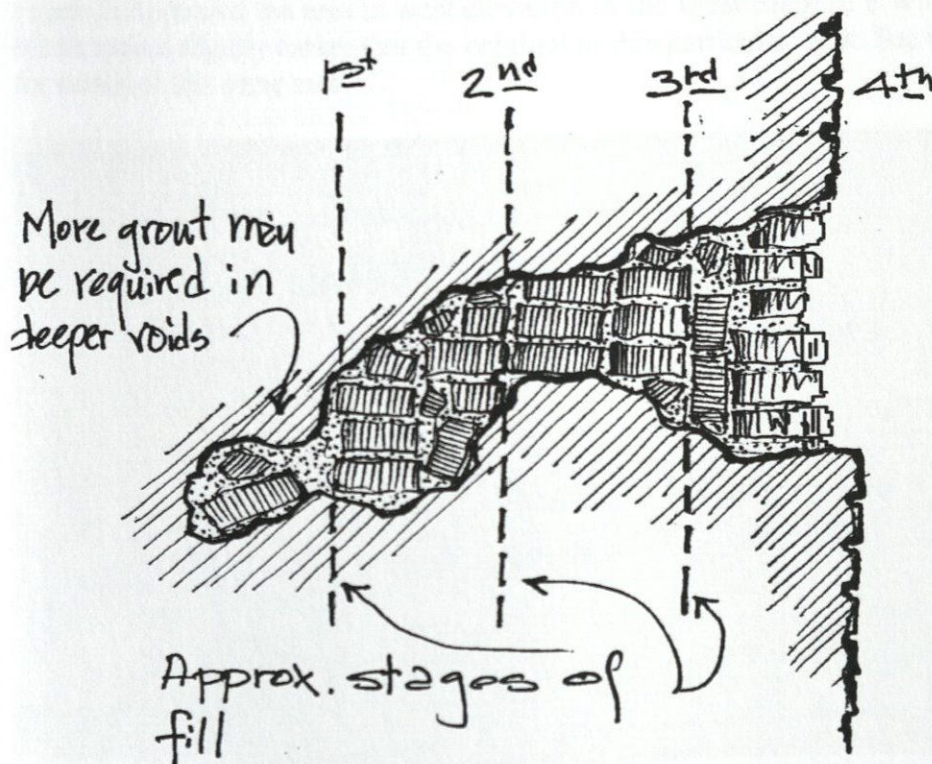 1st 2nd 3rd 4th
More grout may
be required in
deeper voids
Approx. stages of
fill